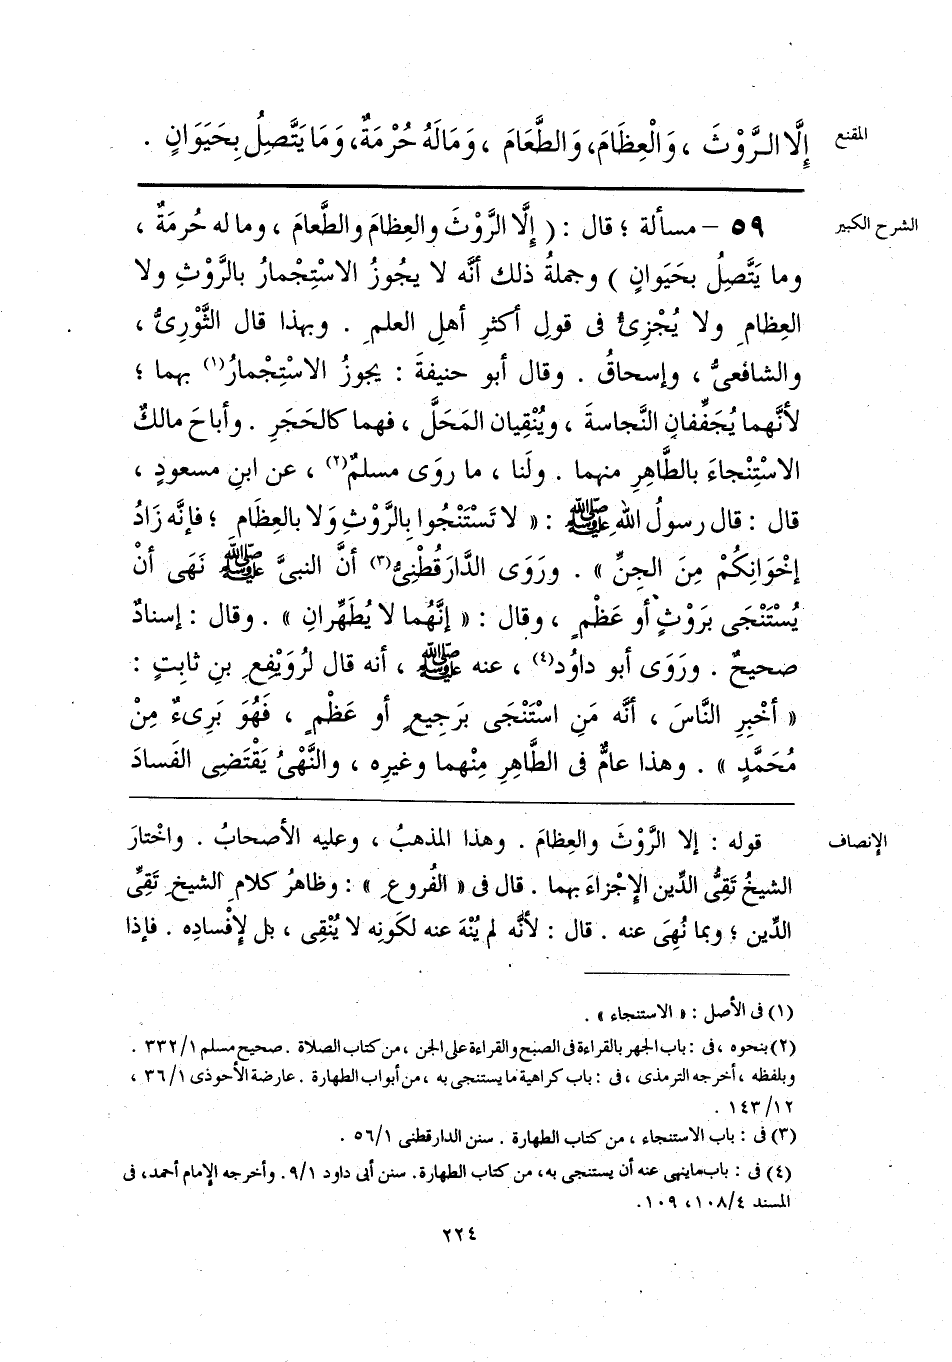 المقنع
إِلَّا الرَّوْثَ ، وَالْعِظَامَ، وَالطَّعَامَ ، وَمَالَهُ حُرْمَةٌ، وَمَا يَتَّصِلُ بِحَيَوَانٍ .
الشرح الكبير
٥٩ – مسألة ؛ قال : ( إِلَّا الرَّوْثَ والعِظامَ والطَّعامَ ، وما له حُرمَةٌ ،
وما يَتَّصِلُ بحَيَوانٍ ) وجملةُ ذلك أنَّه لا يجُوزُ الاسْتِجْمارُ بالرَّوْثِ ولا
العِظامِ ولا يُجْزِئُ فى قولِ أكثرِ أهلِ العلمِ . وبهذا قال الثَّوْرِىُّ ،
والشافعىُّ ، وإسحاقُ . وقال أبو حنيفةَ : يجوزُ الاسْتِجْمارُ(١) بهما ؛
لأنَّهما يُجَفِّفانِ النَّجاسةَ ، ويُنْقِيان المَحَلَّ ، فهما كالحَجَرِ . وأباحَ مالكٌ
الاسْتِنْجاءَ بالطَّاهِرِ منهما . ولَنا ، ما روَى مسلمٌ(٢) ، عن ابنِ مسعودٍ ،
قال : قال رسولُ اللهِ ﷺ : « لا تَسْتَنْجُوا بِالرَّوْثِ وَلا بالعِظَامِ ؛ فإنَّه زَادُ
إخْوَانِكُمْ مِنَ الجِنِّ » . ورَوَى الدَّارَقُطْنِىُّ(٣) أنَّ النبىَّ ﷺ نَهَى أنْ
يُسْتَنْجَى بِرَوْثٍ أو عَظْمٍ ، وقال : « إنَّهُما لا يُطَهِّرانِ » . وقال : إسنادٌ
صحيحٌ . ورَوَى أبو داوُد(٤) ، عنه ﷺ ، أنه قال لرُوَيْفِعِ بنِ ثابِتٍ :
« أخْبِرِ النَّاسَ ، أنَّه مَنِ اسْتَنْجَى بِرَجِيعٍ أو عَظْمٍ ، فَهُوَ بَرِىءٌ مِنْ
مُحَمَّدٍ » . وهذا عامٌّ فى الطَّاهِرِ مِنْهما وغيرِه ، والنَّهْىُ يَقْتَضِى الفَسادَ
الإنصاف
قوله : إلا الرَّوْثَ والعِظامَ . وهذا المذهبُ ، وعليه الأصحابُ . واخْتارَ
الشيخُ تَقِىُّ الدِّين الإِجْزاءَ بهما . قال فى « الفُروعِ » : وظاهرُ كلامِ الشيخِ تَقِىِّ
الدِّين ؛ وبما نُهِىَ عنه . قال : لأنَّه لم يُنْهَ عنه لكَونِه لا يُنْقِى ، بل لِإفْسادِه . فإذا
(١) فى الأصل : « الاستنجاء » .
(٢) بنحوه ، فى : باب الجهر بالقراءة فى الصبح والقراءة على الجن ، من كتاب الصلاة . صحيح مسلم ٣٣٢/١ .
وبلفظه ، أخرجه الترمذى ، فى : باب كراهية ما يستنجى به ، من أبواب الطهارة . عارضة الأحوذى ٣٦/١ ،
١٤٣/١٢ .
(٣) فى : باب الاستنجاء ، من كتاب الطهارة . سنن الدارقطنى ٥٦/١ .
(٤) فى : باب ماينهى عنه أن يستنجى به، من كتاب الطهارة. سنن أبى داود ٩/١. وأخرجه الإمام أحمد، فى
المسند ١٠٨/٤، ١٠٩.
٢٢٤